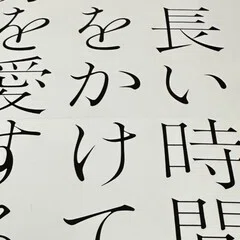 長い時間
をかけて
を愛する